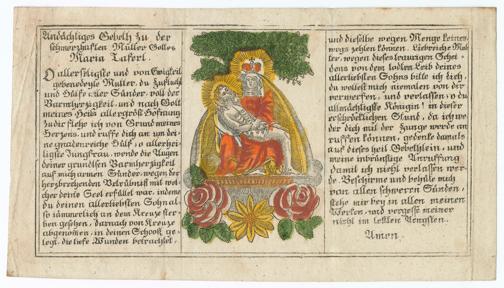 Andächtiges Gebeth zu der
schmerzhaften Mutter Gottes
Maria Taferl.
O allerseligste und von Ewigkeit
gebenedeyte Mutter, du Zuflucht
und Hülfe aller Sünder, voll der
Barmherzigkeit, und nach Gott
meines Heils allergröste Hoffnung
zu dir flehe ich von Grund meines
Herzens, und ruffe dich an um dei-
ne gnadenreiche Hülf, o allerhei-
ligste Jungfrau, wende die Augen
deiner grundlosen Barmherzigkeit
auf mich armen Sünder, wegen der
herzbrechenden Betrübniß mit wel-
cher deine Seel erfüllet war, indeme
du deinen allerliebsten Sohn al-
so jämmerlich an dem Kreuze ster-
ben gesehen, darnach von Kreuze
abgenomen, in deinen Schooß ge-
legt, die tiefe Wunden betrachtet,
und dieselbe wegen Menge keines-
wegs zehlen können. Liebreiche Mut-
ter, wegen dieses traurigen Schei-
dens von dem todten Leib deines
allerliebsten Sohns bitte ich dich,
du wollest mich niemalen von dir
verwerfen, und verlassen, o du
allmächtigste Königin! in dieser
erschröcklichen Stund, da ich we
der dich mit der Zunge werde an
ruffen können, gedenke damals
auf dieses heil Gebethlein, und
meine inbrünstige Anruffung
damit ich nicht verlohren wer-
de. Beschirme und behüte mich
von allen schweren Sünden,
stehe mir bey in allen meinen
Werken, und vergesse meiner
nicht im letzten Aengsten.
Amen.